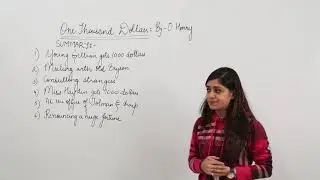 One Thousand Dollars: By- O Henry
SUMMARY:-
1) Young Gillian gets 1000 dollars
2) Meeting with old Bryson
3) Consulting strangers
4) Miss Hayden gets 1000 dollars
5) At the office of Tolman & Sharp
6) Renouncing a huge fortune